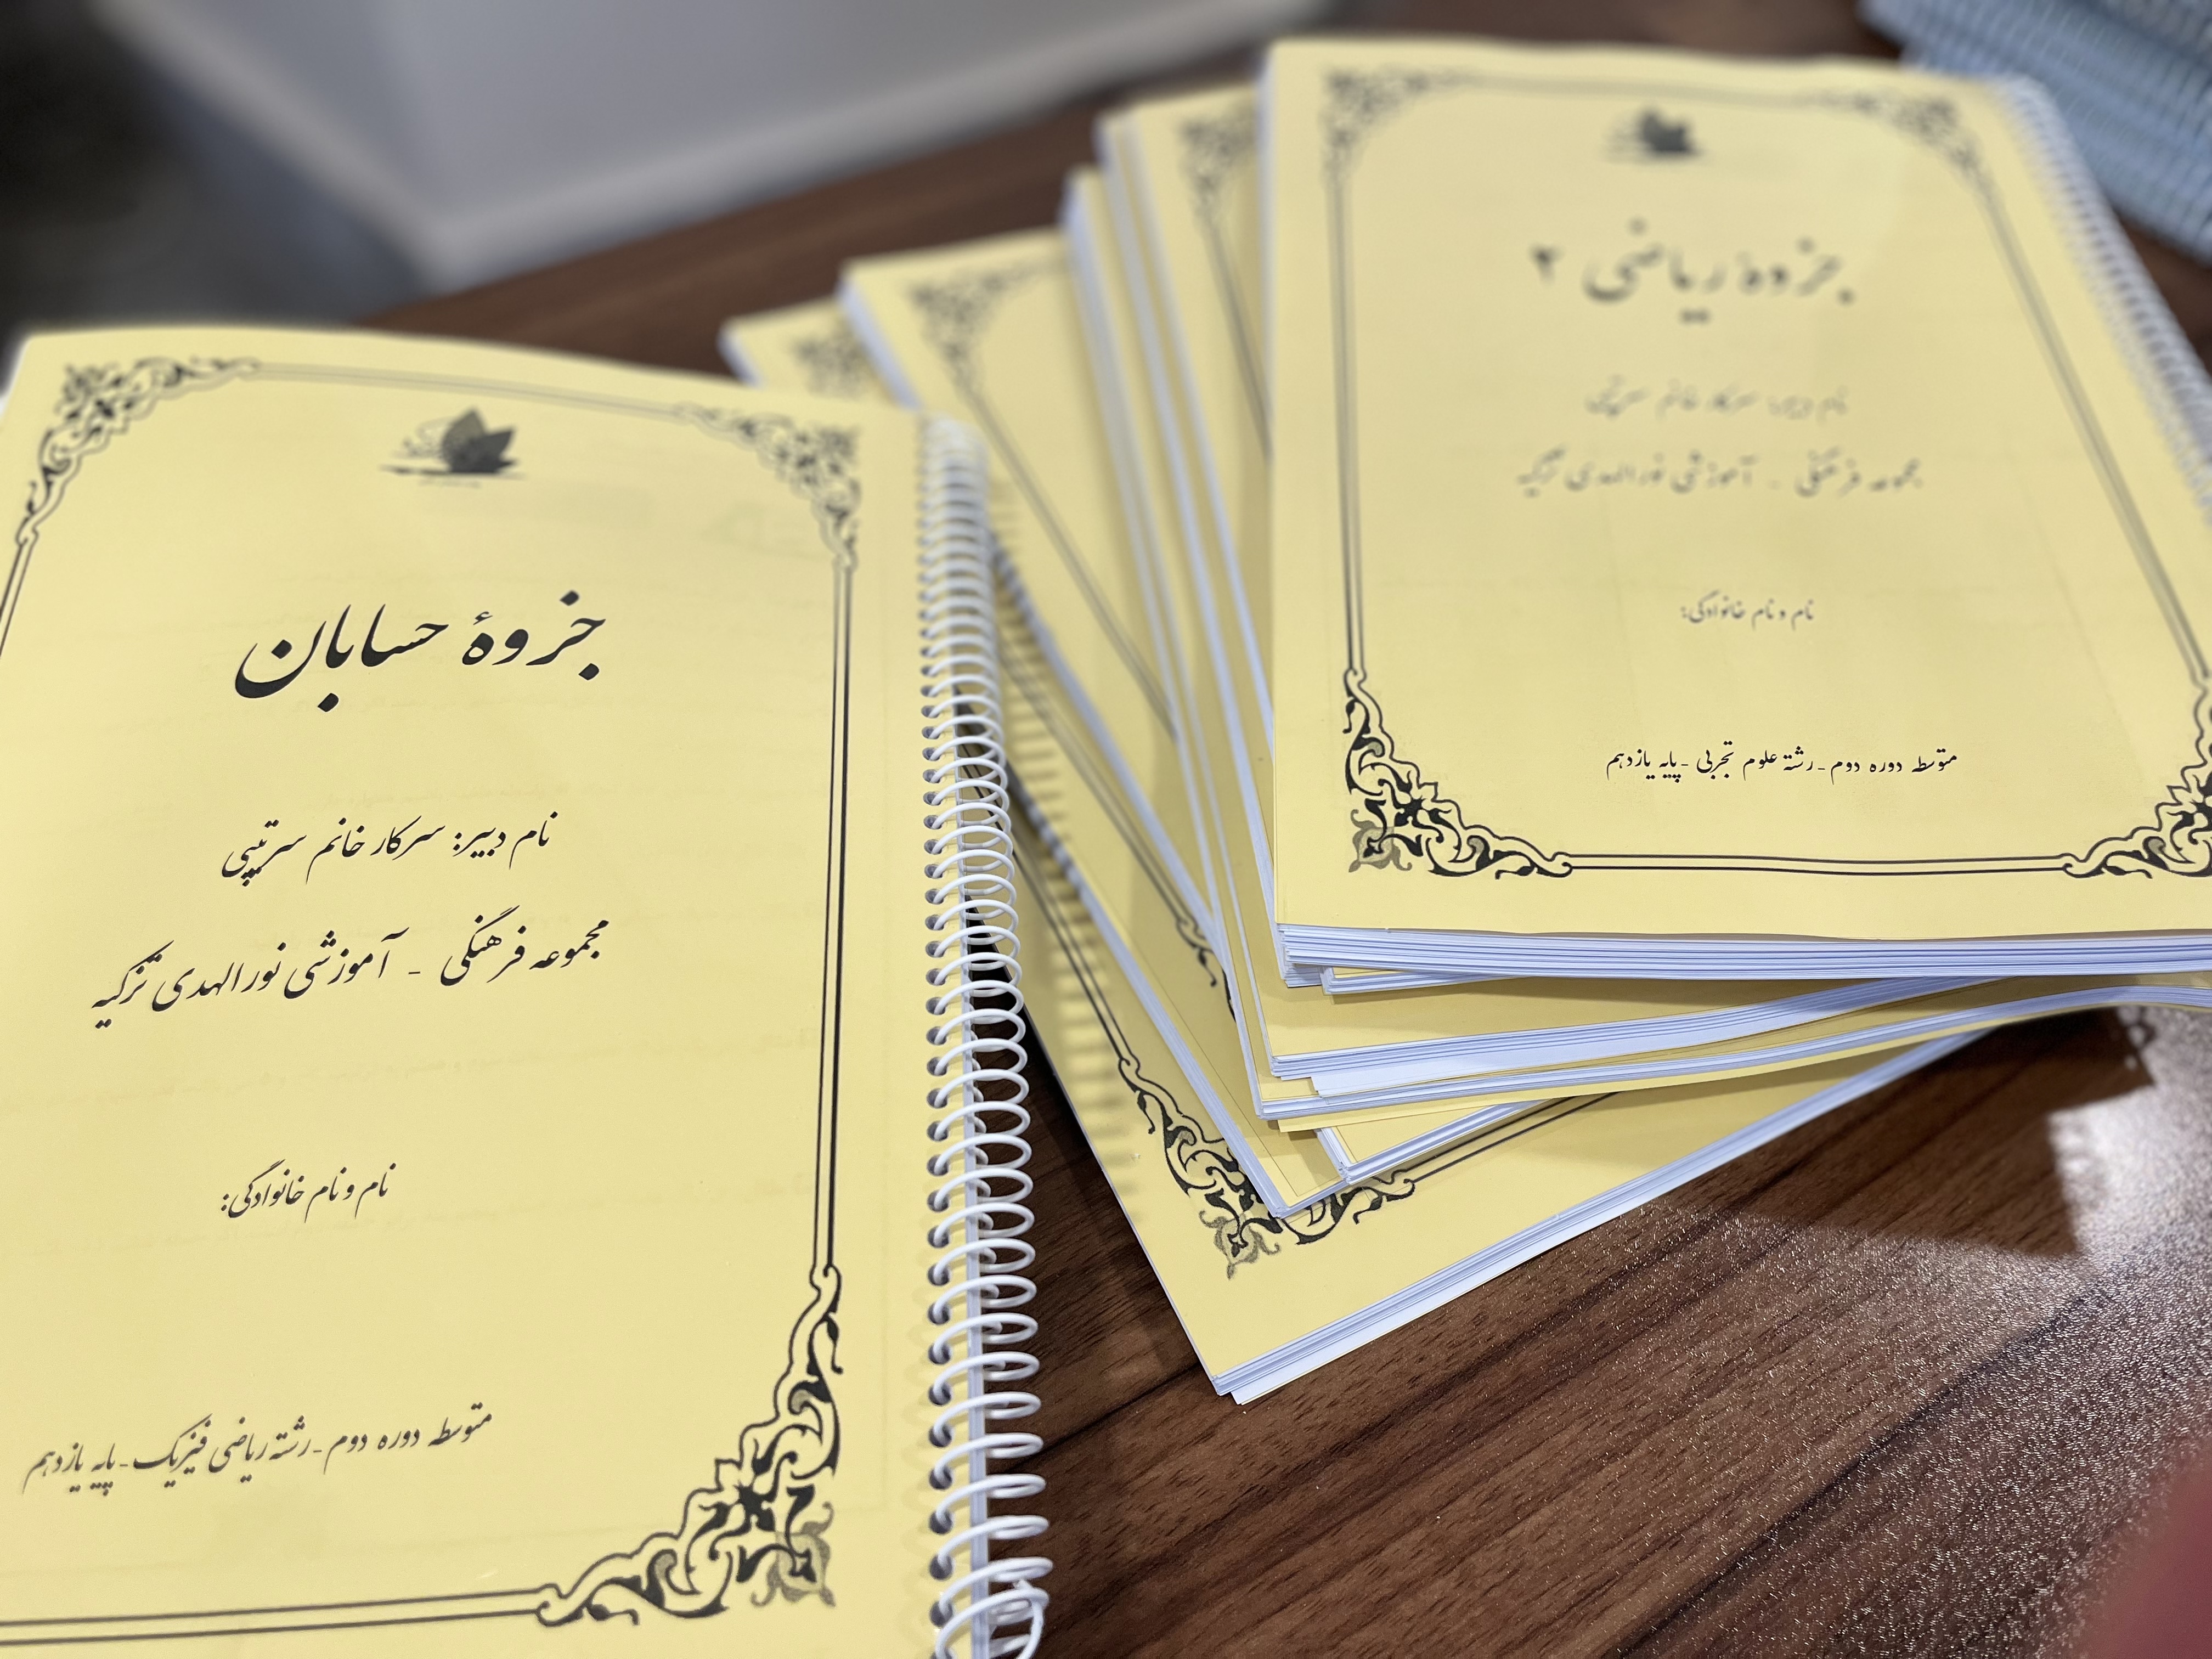 جزوهٔ حسابان
نام دبیر: سرکار خانم سرتیپی
مجموعه فرهنگی - آموزشی نورالهدی تزکیه
نام و نام خانوادگی:
متوسطه دوره دوم-رشته ریاضی فیزیک-پایه یازدهم
جزوهٔ ریاضی ۲
نام دبیر: سرکار خانم سرتیپی
مجموعه فرهنگی - آموزشی نورالهدی تزکیه
نام و نام خانوادگی:
متوسطه دوره دوم-رشته علوم تجربی-پایه یازدهم